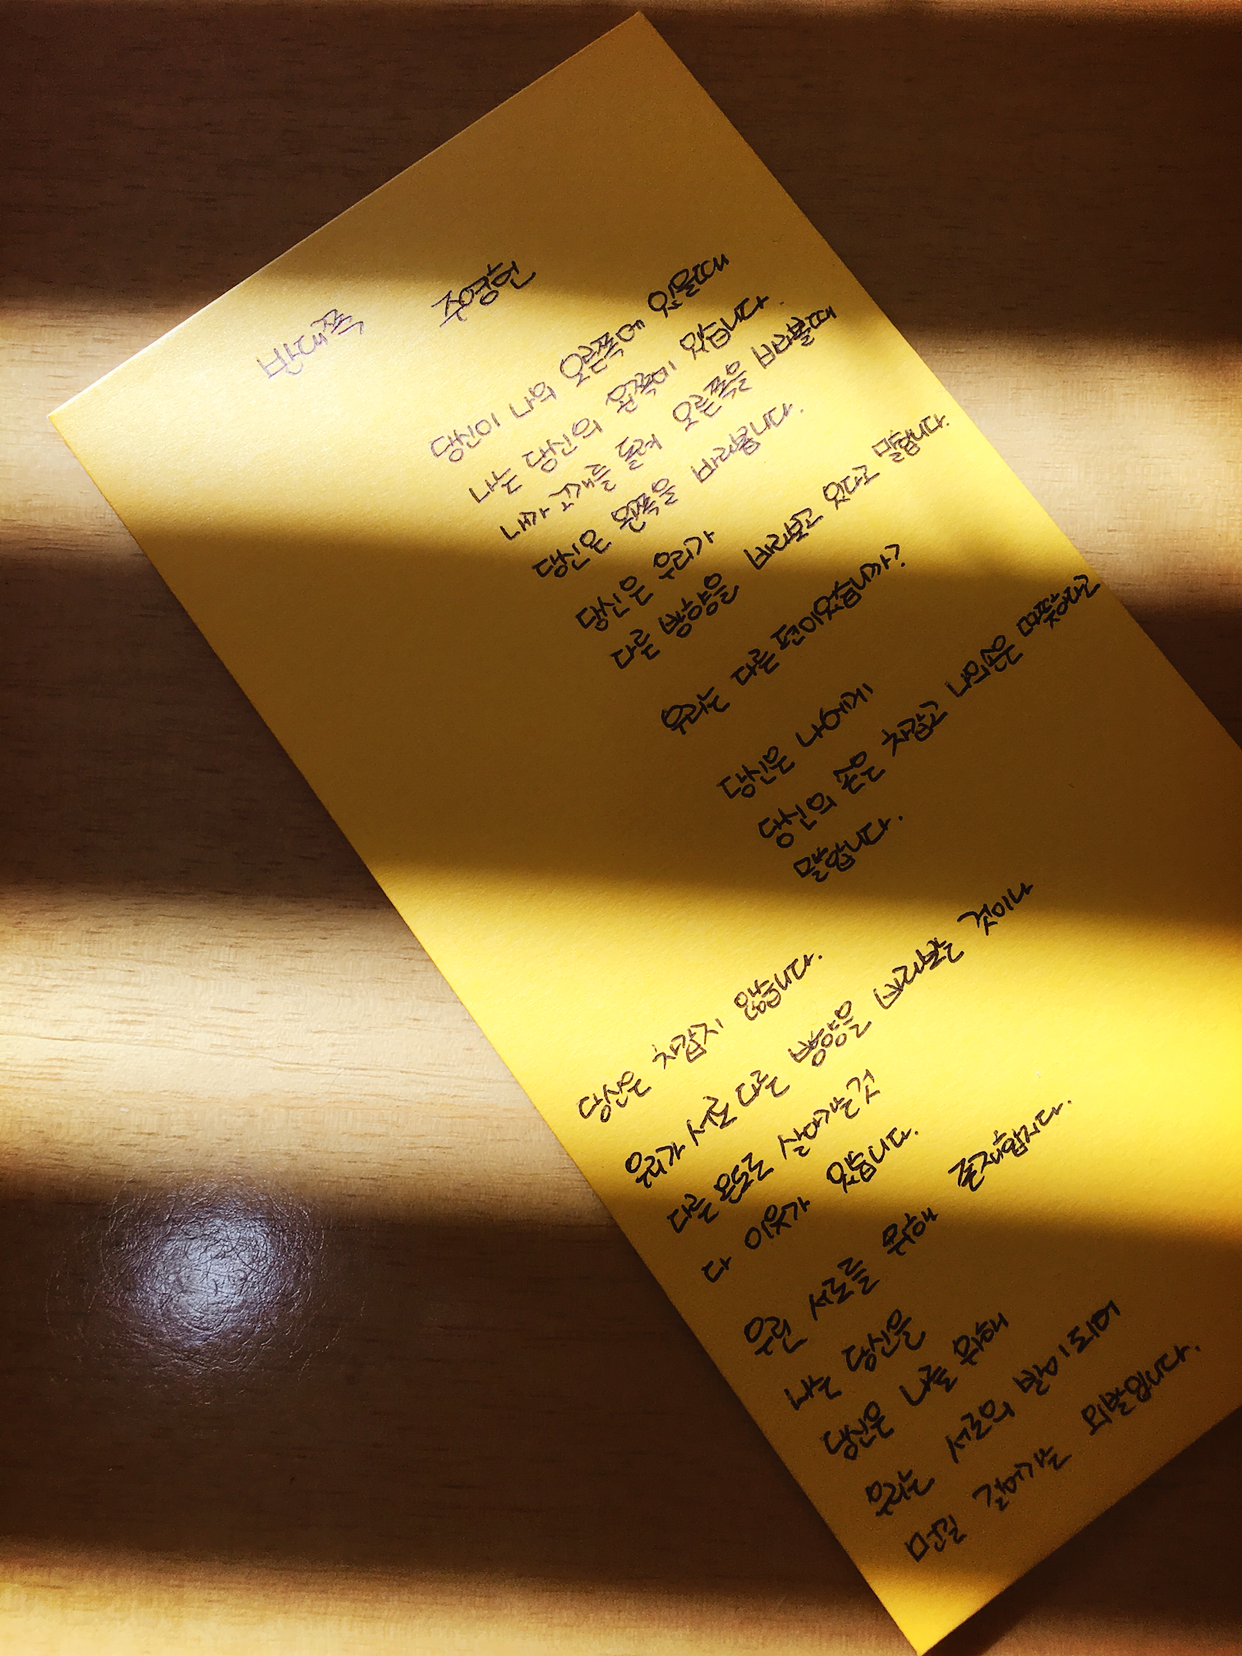 반대쪽 주영헌
당신이 나의 오른쪽에 있을때
나는 당신의 왼쪽에 있습니다.
내가 고개를 돌려 오른쪽을 바라볼때
당신은 왼쪽을 바라봅니다.
당신은 우리가
다른 방향을 바라보고 있다고 말합니다.
우리는 다른 편이었습니까?
당신은 나에게
당신의 손은 차갑고 나의손은 따뜻하다고
말합니다.
당신은 차갑지 않습니다.
우리가 서로 다른 방향을 바라보는 것이나
다른 온도로 살아가는것
다 이유가 있습니다.
우린 서로를 위해 존재합니다.
나는 당신을
당신은 나를 위해
우리는 서로의 발이 되어
먼길 걸어가는 외발입니다.